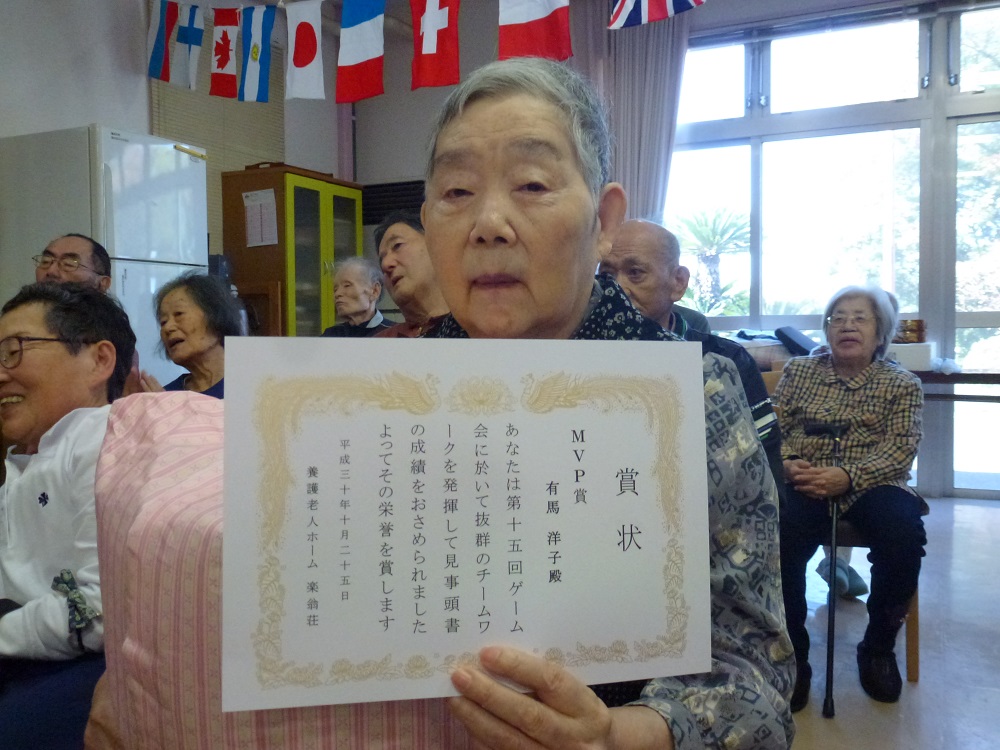 賞状
MVP賞
有馬 洋子殿
あなたは第十五回ゲーム
会に於いて抜群のチームワ
ークを発揮して見事頭書
の成績をおさめられました
よってその栄誉を賞します
平成三十年十月二十五日
養護老人ホーム 楽翁荘